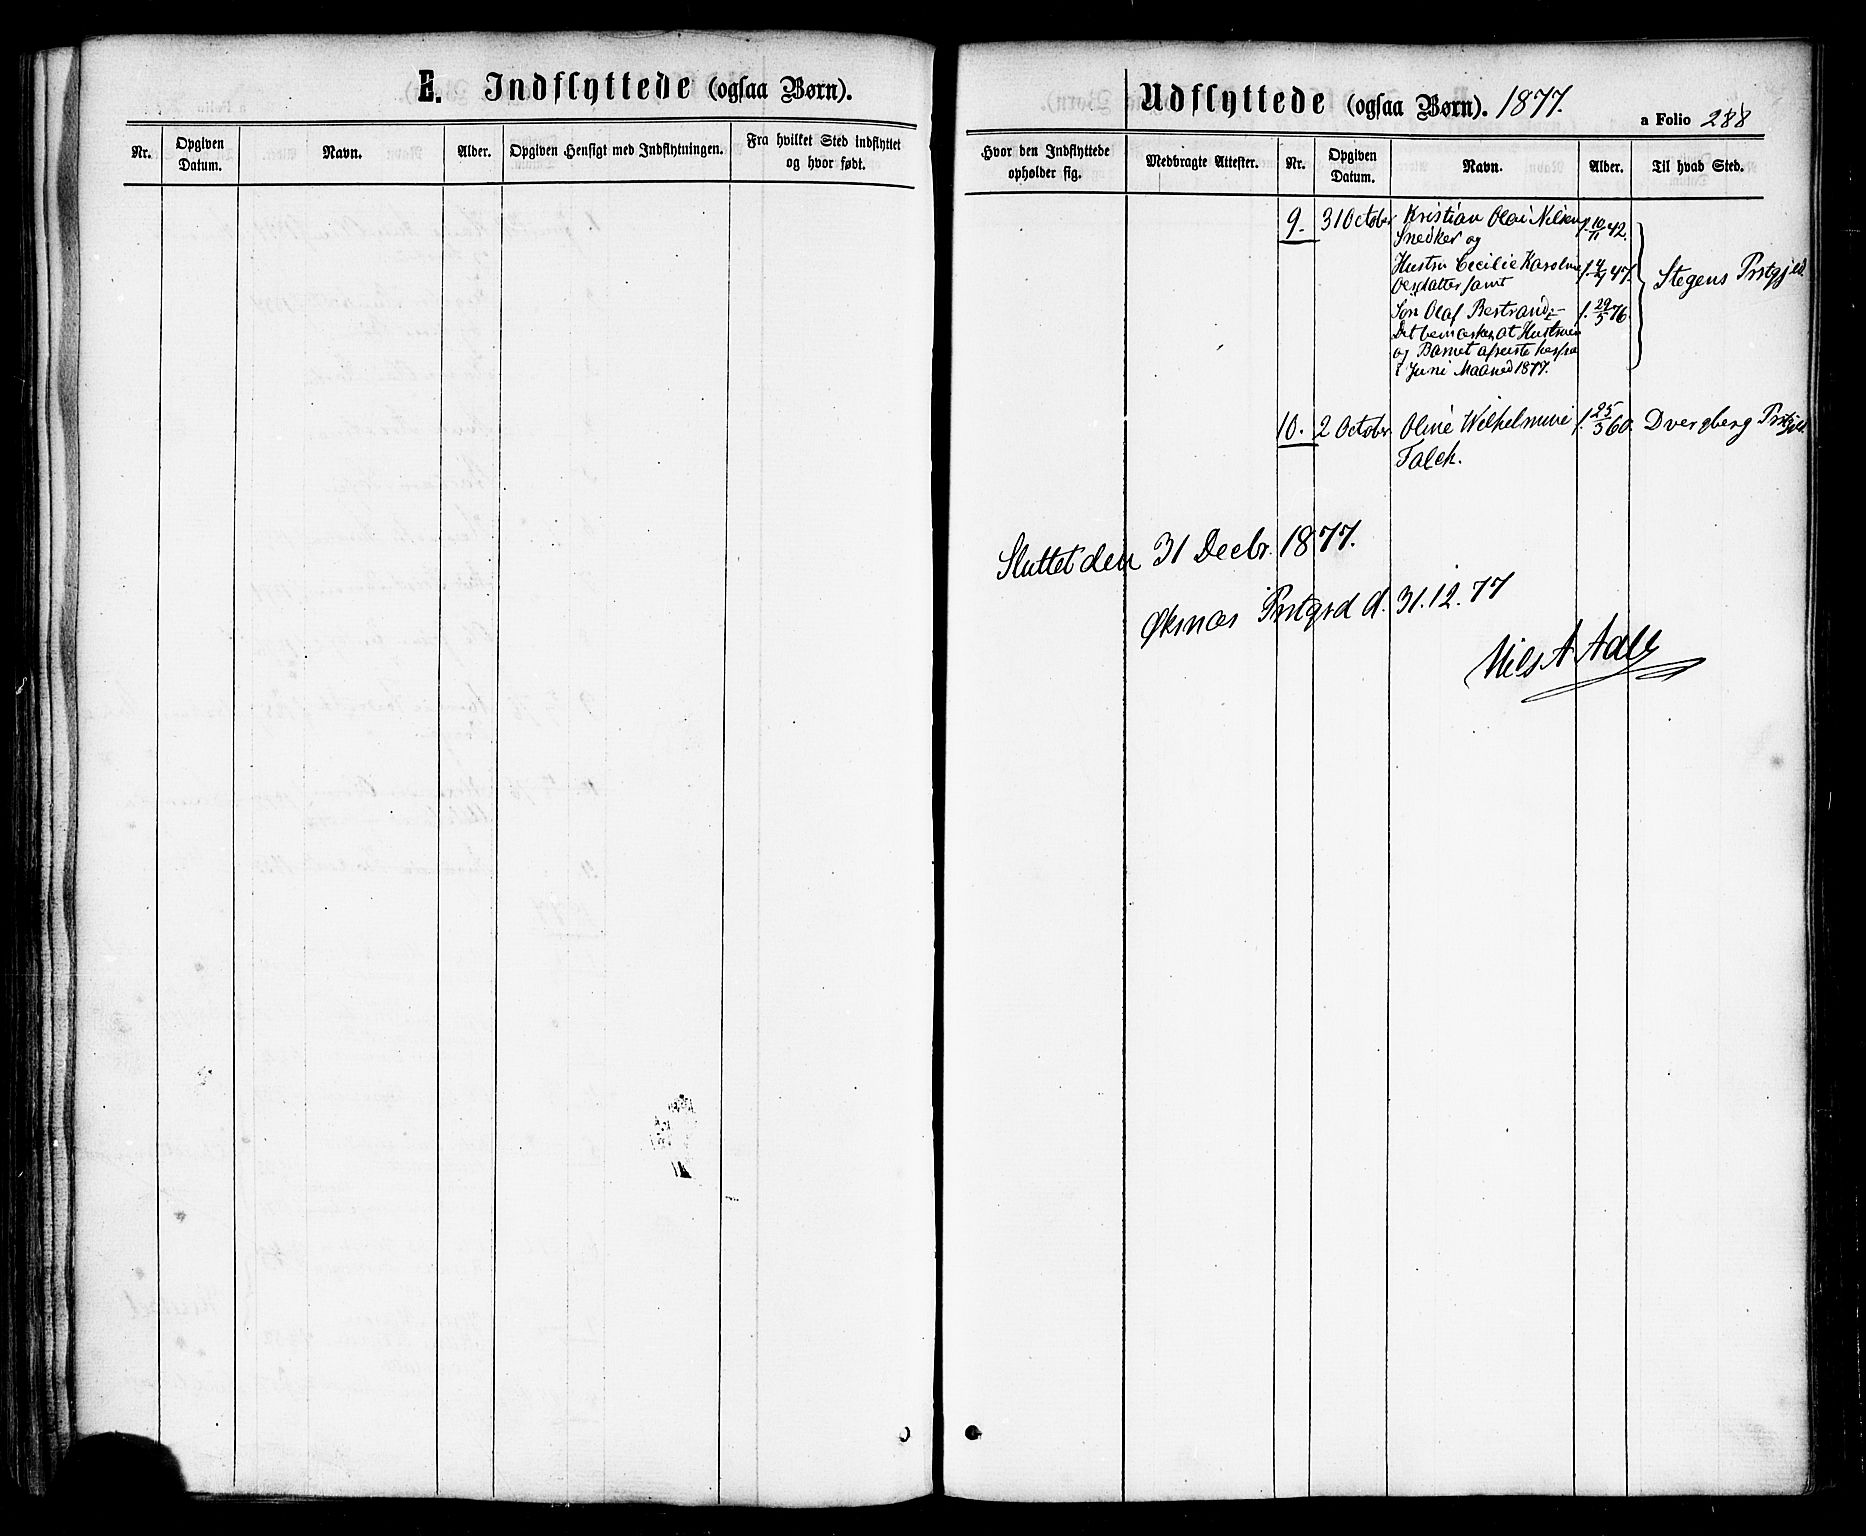 E. Indflyttede (ogsaa Børn).
Nr.
Opgiven Datum.
Navn.
Alder.
Opgiven Hensigt med Indflytningen.
Fra hvilket Sted indflyttet og hvor født.
Udflyttede (ogsaa Børn). 1877.
a Folio 288
Hvor den Indflyttede opholder sig.
Medbragte Attester.
Nr.
Opgiven Datum.
Navn.
Alder.
Til hvad Sted.
9. 31 October Kristian Olai Nilsen f. 10/11 42.
Snedker og
Hustru Cecilie Karoline 47.
samt
Stegens Prstgjeld
Søn Olaf Bertrand f. 29/5 76.
Det bemærkes, at Hustruen
og Barnet afreiste herfra
i Juni Maaned 1877.
10. 2 October Oline Wilhelmine f. 25/5 60. Dverberg Prstgjeld
Falch.
Sluttet den 31 Decbr. 1877.
Øksnæs Prstgrd d. 31.12.77
Nils A